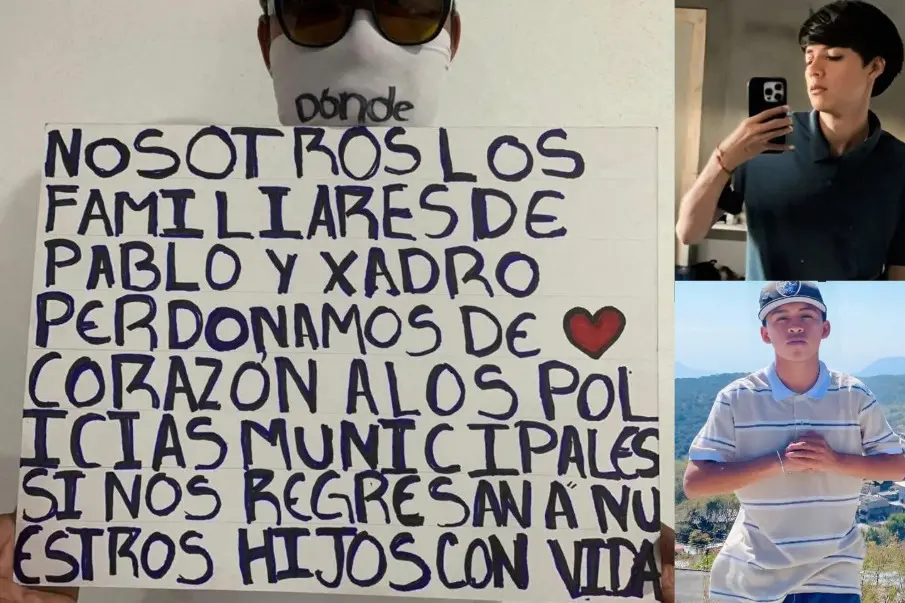 Dónde
NOSOTROS LOS
FAMILIARES DE
PABLO Y XADRO
PERDONAMOS DE
CORAZÓN A LOS POL
ICIAS MUNICIPALES
SI NOS REGRESAN Á NU
ESTROS HIJOS CON VIDA